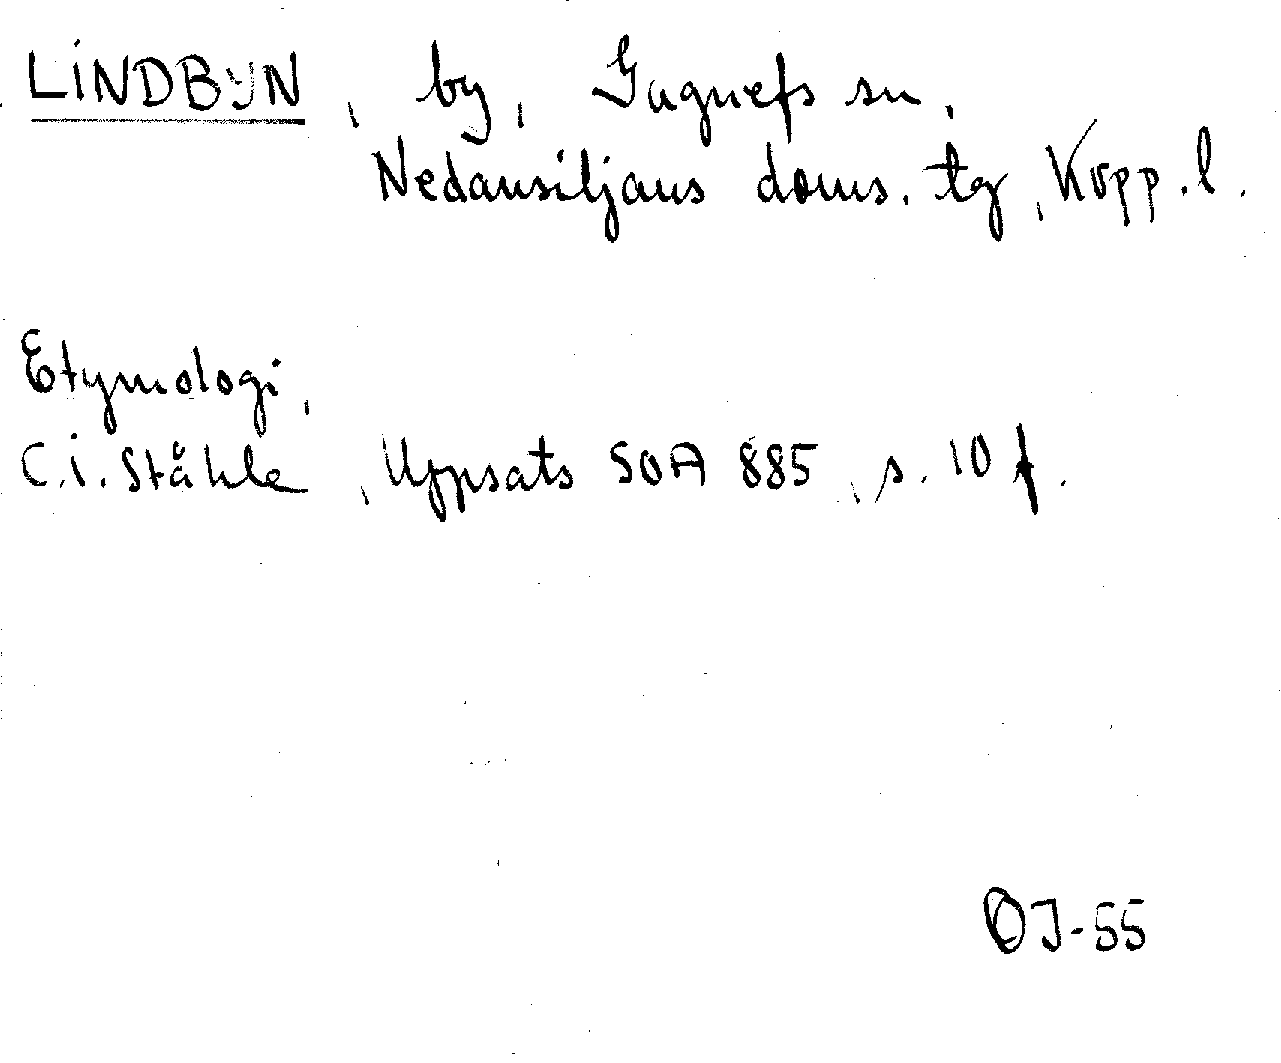 LINDBYN, by, Gagnefs sn,
Nedansiljans doms. tg, Kopp. l.
Etymologi,
C.I. Ståhle, Uppsats SOA 885, s. 10 f.
OJ-55